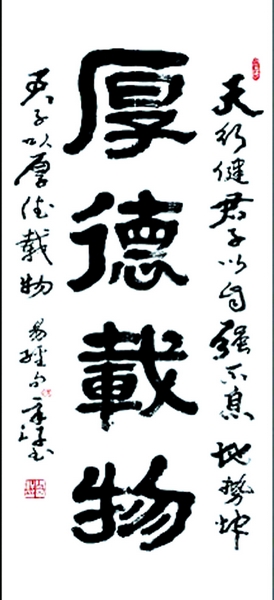 天行健君子以自强不息地势坤
厚德載物
君子以厚德载物
易经句